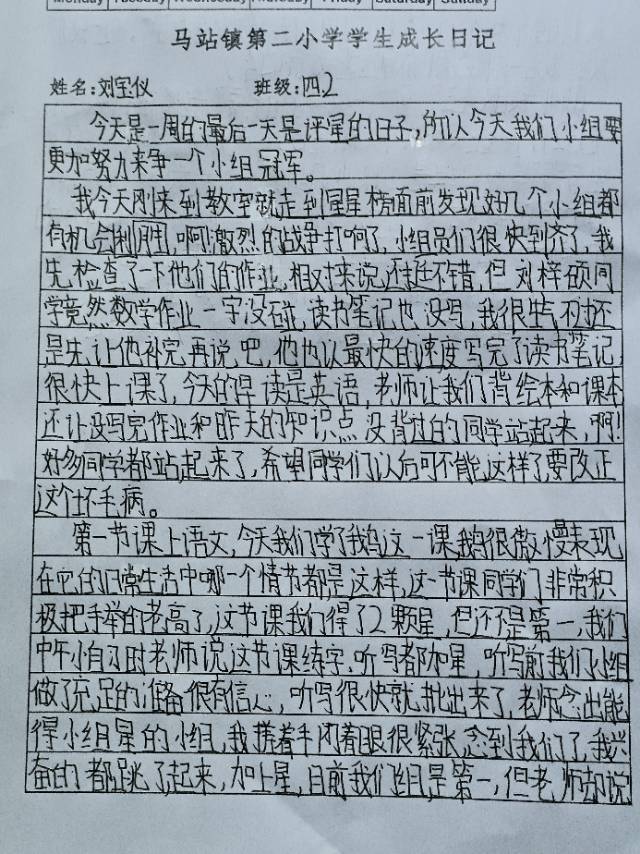 Monday Tuesday Wednesday Thursday Friday Saturday Sunday
马站镇第二小学学生成长日记
姓名:刘宝仪 班级:四2
今天是一周的最后一天是评星的日子,所以今天我们小组要
更加努力来争一个小组冠军。
我今天刚来到教室就走到星星榜面前发现好几个小组都
有机会利用,啊!激烈的战争打响了,小组员们很快到齐了,我
先检查了一下他们的作业,相对来说还挺不错,但刘梓硕同
学竟然数学作业一字没碰,读书笔记也没写,我很生气不过还
是先让他补完再说吧,他也以最快的速度写完了读书笔记,
很快上课了,今天的早读是英语,老师让我们背绘本和课本
还让没写完作业和昨天的知识点没背过的同学站起来,啊!
好多同学都站起来了,希望同学们以后可不能这样了要改正
这个坏毛病。
第一节课上语文,今天我们学了我鸟这一课我鸟很傲慢表现
在它的日常生活中哪一个情节都是这样,这一节课同学们非常积
极把手举的老高了,这节课我们得了2颗星,但还不是第一,我们
中午小自习时老师说这节课练字.听写都加星,听写前我们小组
做了充足的准备很有信心,听写很快就批出来了,老师念出能
得小组星的小组,我搓着手闭着眼很紧张念到我们了,我兴
奋的都跳了起来,加上星,目前我们组是第一,但老师却说